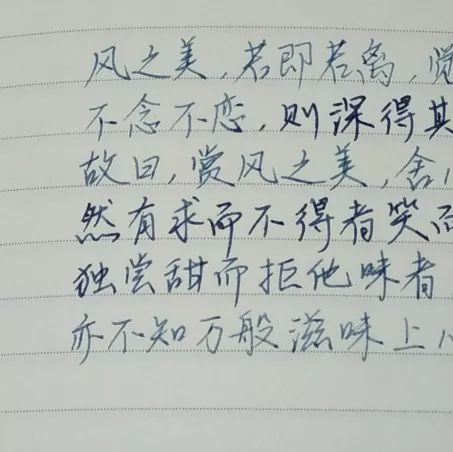 风之美，若即若离，觉
不念不恋，则深得其
故曰，赏风之美，舍
然有求而不得者笑而
独尝甜而拒他味者
亦不知万般滋味上心